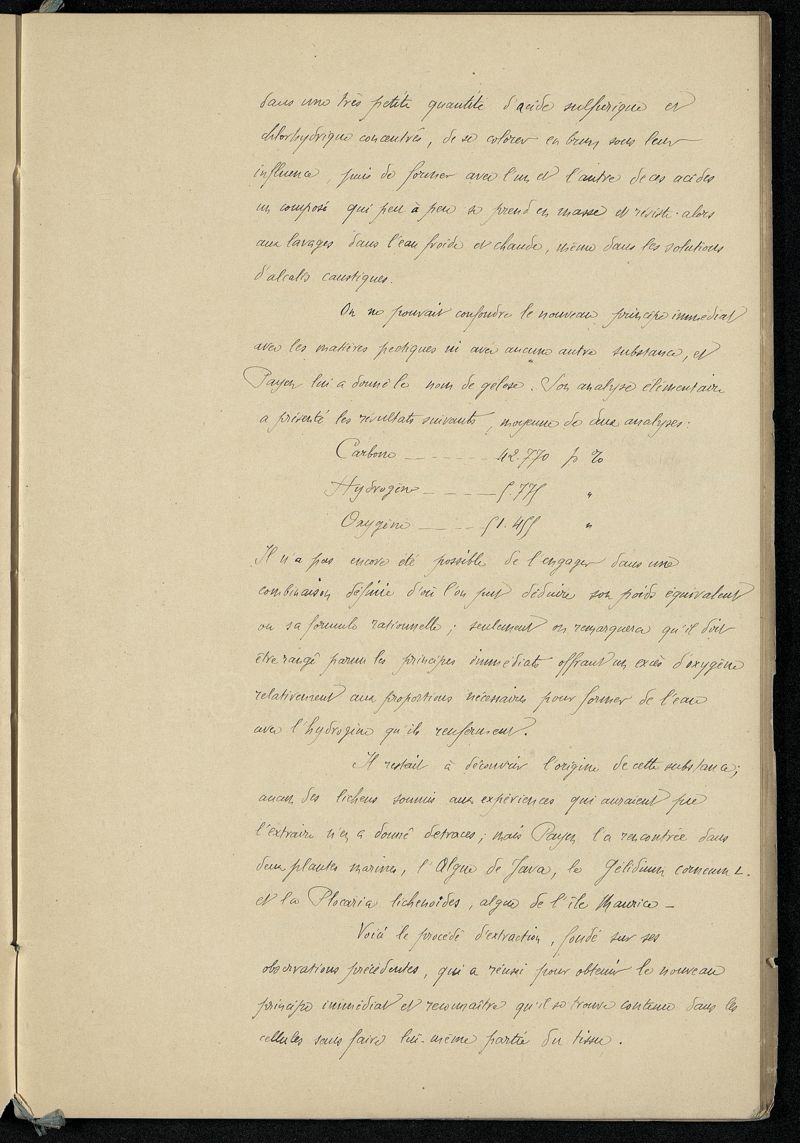 dans une très petite quantité d'acide sulfurique et
chlorhydrique concentrés, de se colorer en brun sous leur
influence, puis de former avec l'un et l'autre de ces acides
un composé qui peu à peu se prend en masse et résiste alors
aux lavages dans l'eau froide et chaude, même dans les solutions
d'alcalis caustiques.
On ne pouvait confondre le nouveau principe immédiat
avec les matières pectiques ni avec aucune autre substance, et
Payen lui a donné le nom de gelose. Son analyse élémentaire
a présenté les résultats suivants, moyenne de deux analyses:
Carbone ------- 42.770 p %
Hydrogène ----- 5.775 "
Oxygène ----- 51.455 "
Il n'a pas encore été possible de l'engager dans une
combinaison définie d'où l'on put déduire son poids équivalent
ou sa formule rationnelle; seulement on remarquera qu'il doit
être rangé parmi les principes immédiats offrant un excès d'oxygène
relativement aux proportions nécessaires pour former de l'eau
avec l'hydrogène qu'ils renferment.
Il restait à découvrir l'origine de cette substance;
aucun des lichens soumis aux expériences qui auraient pu
l'extraire n'en a donné de traces; mais Payen l'a rencontrée dans
deux plantes marines, l'Algue de Java, le Gélidium corneum L.
et la Plocaria lichenoïdes, algue de l'île Maurice -
Voici le procédé d'extraction, fondé sur ses
observations précédentes, qui a réussi pour obtenir le nouveau
principe immédiat et reconnaître qu'il se trouve contenu dans les
cellules sans faire lui-même partie du tissu.